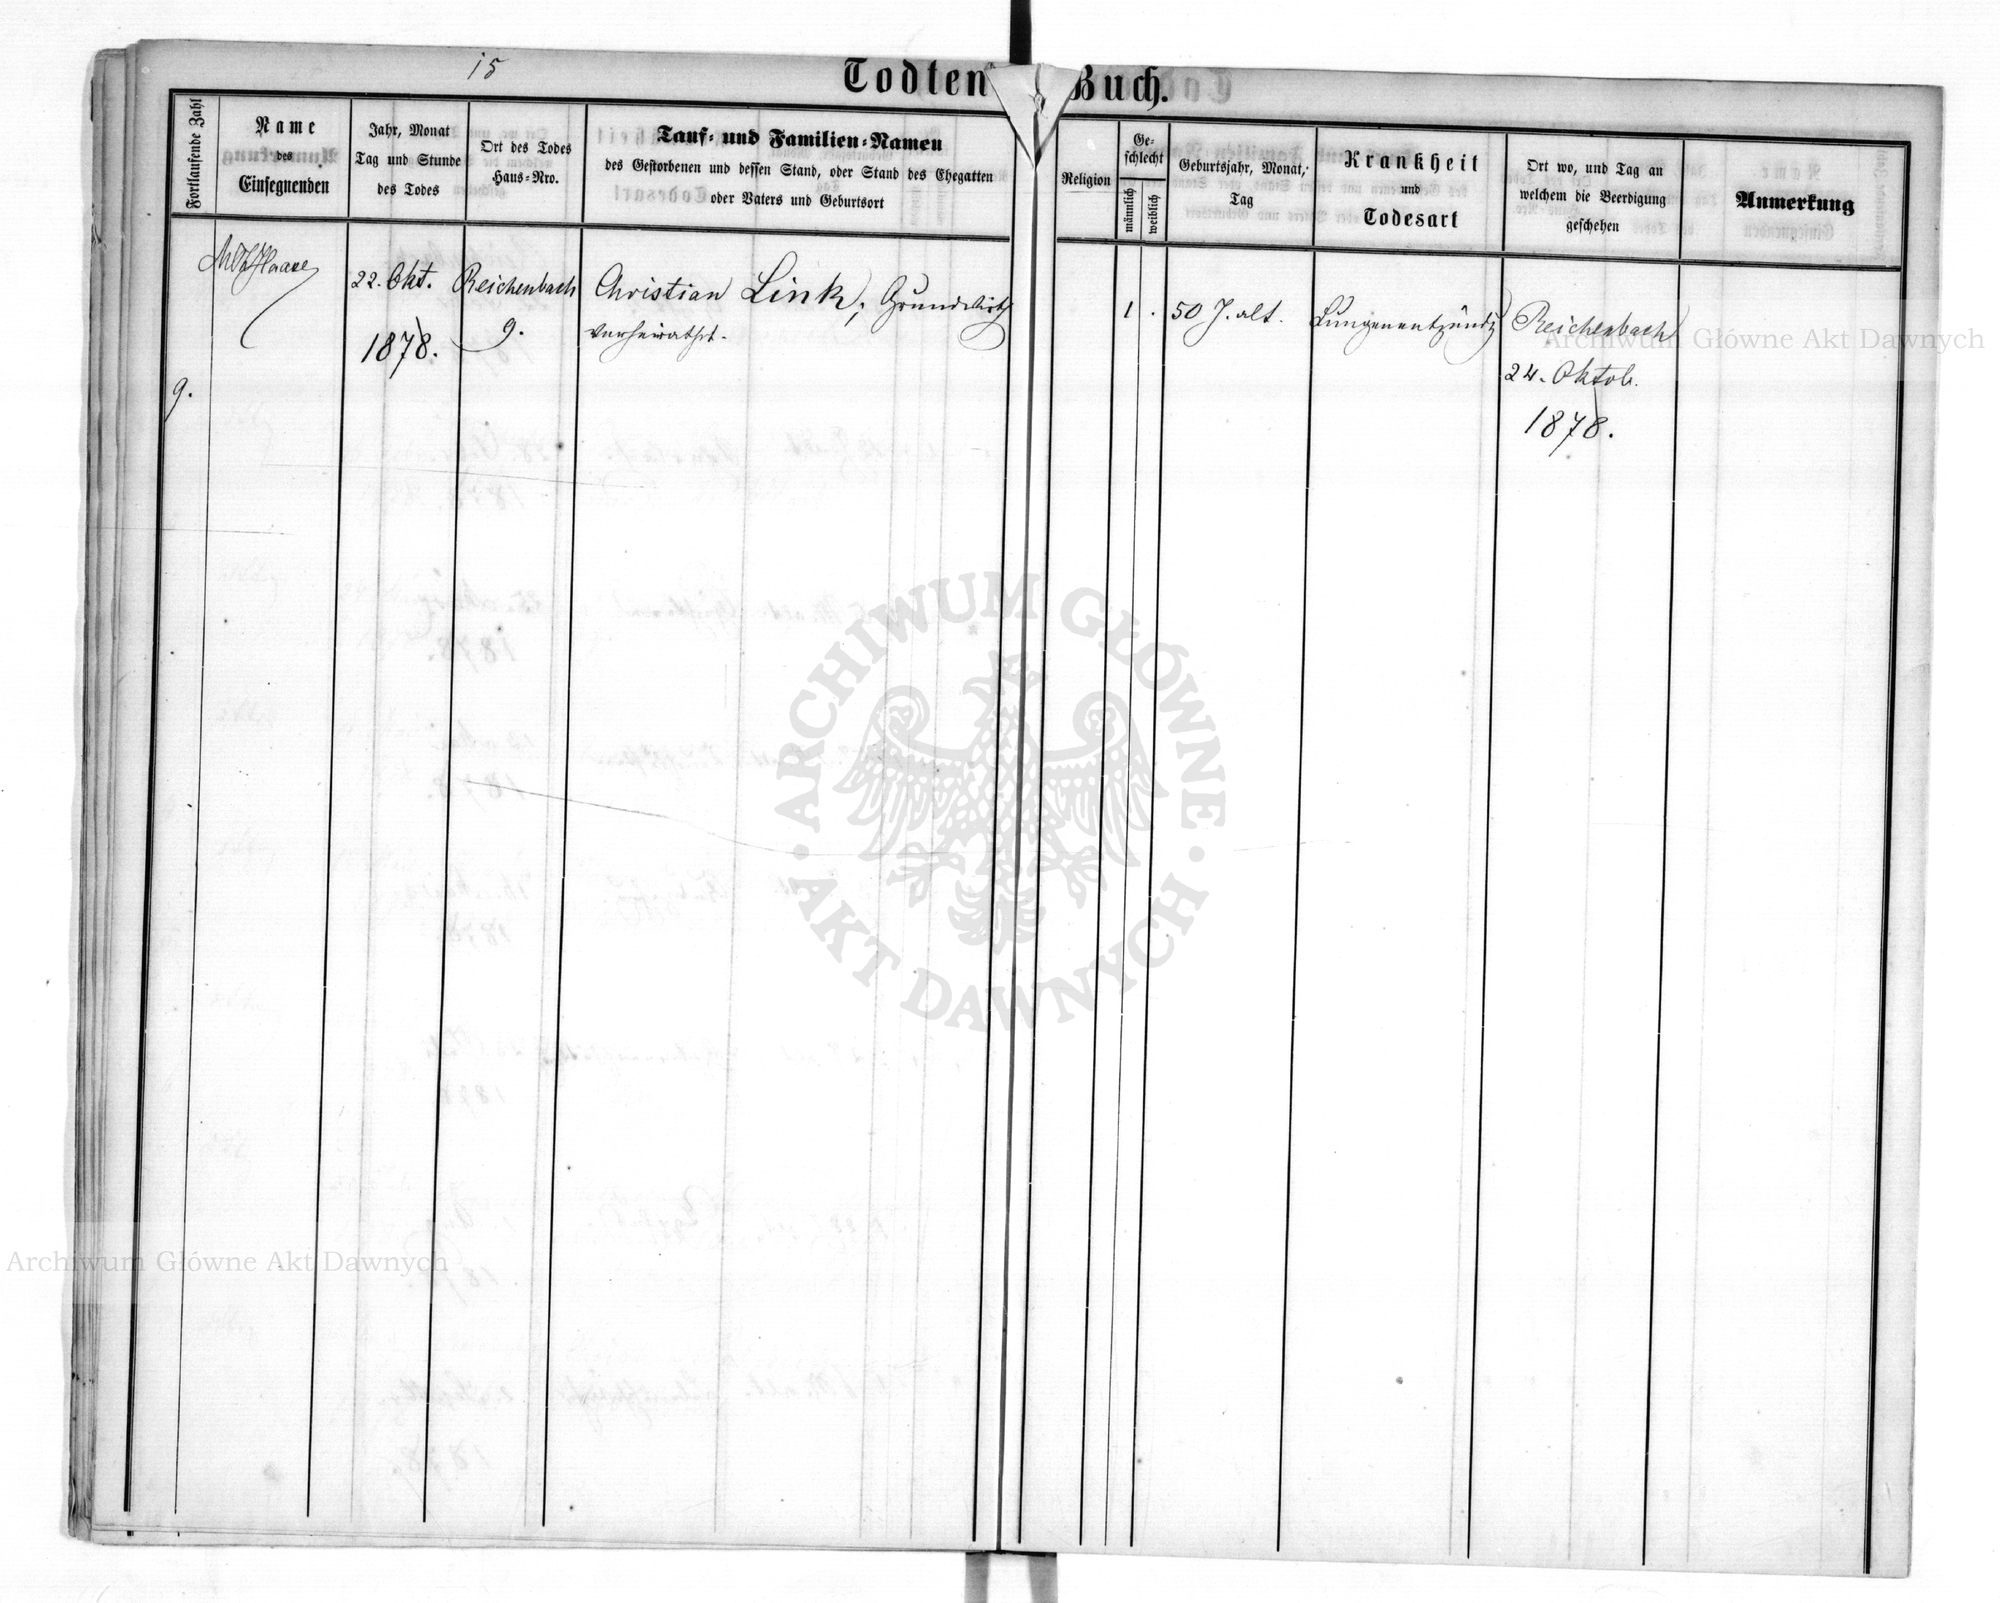 15
Todten Buch.
Fortlaufende Zahl
Name
des
Einsegnenden
Jahr, Monat
Tag und Stunde
des Todes
Ort des Todes
Haus-Nro.
Tauf- und Familien-Namen
des Gestorbenen und dessen Stand, oder Stand des Ehegatten
oder Vaters und Geburtsort
Religion
Ge-
schlecht
männlich
weiblich
Geburtsjahr, Monat,
Tag
Krankheit
und
Todesart
Ort wo, und Tag an
welchem die Beerdigung
geschehen
Anmerkung
9.
22. Okt.
1878.
Reichenbach
9.
Christian Link, Grundwirth
verheirathet.
1 .
50 J. alt.
Reichenbach
24. Oktob.
1878.
Archiwum Główne Akt Dawnych
ARCHIWUM GŁÓWNE
AKT DAWNYCH
Archiwum Główne Akt Dawnych